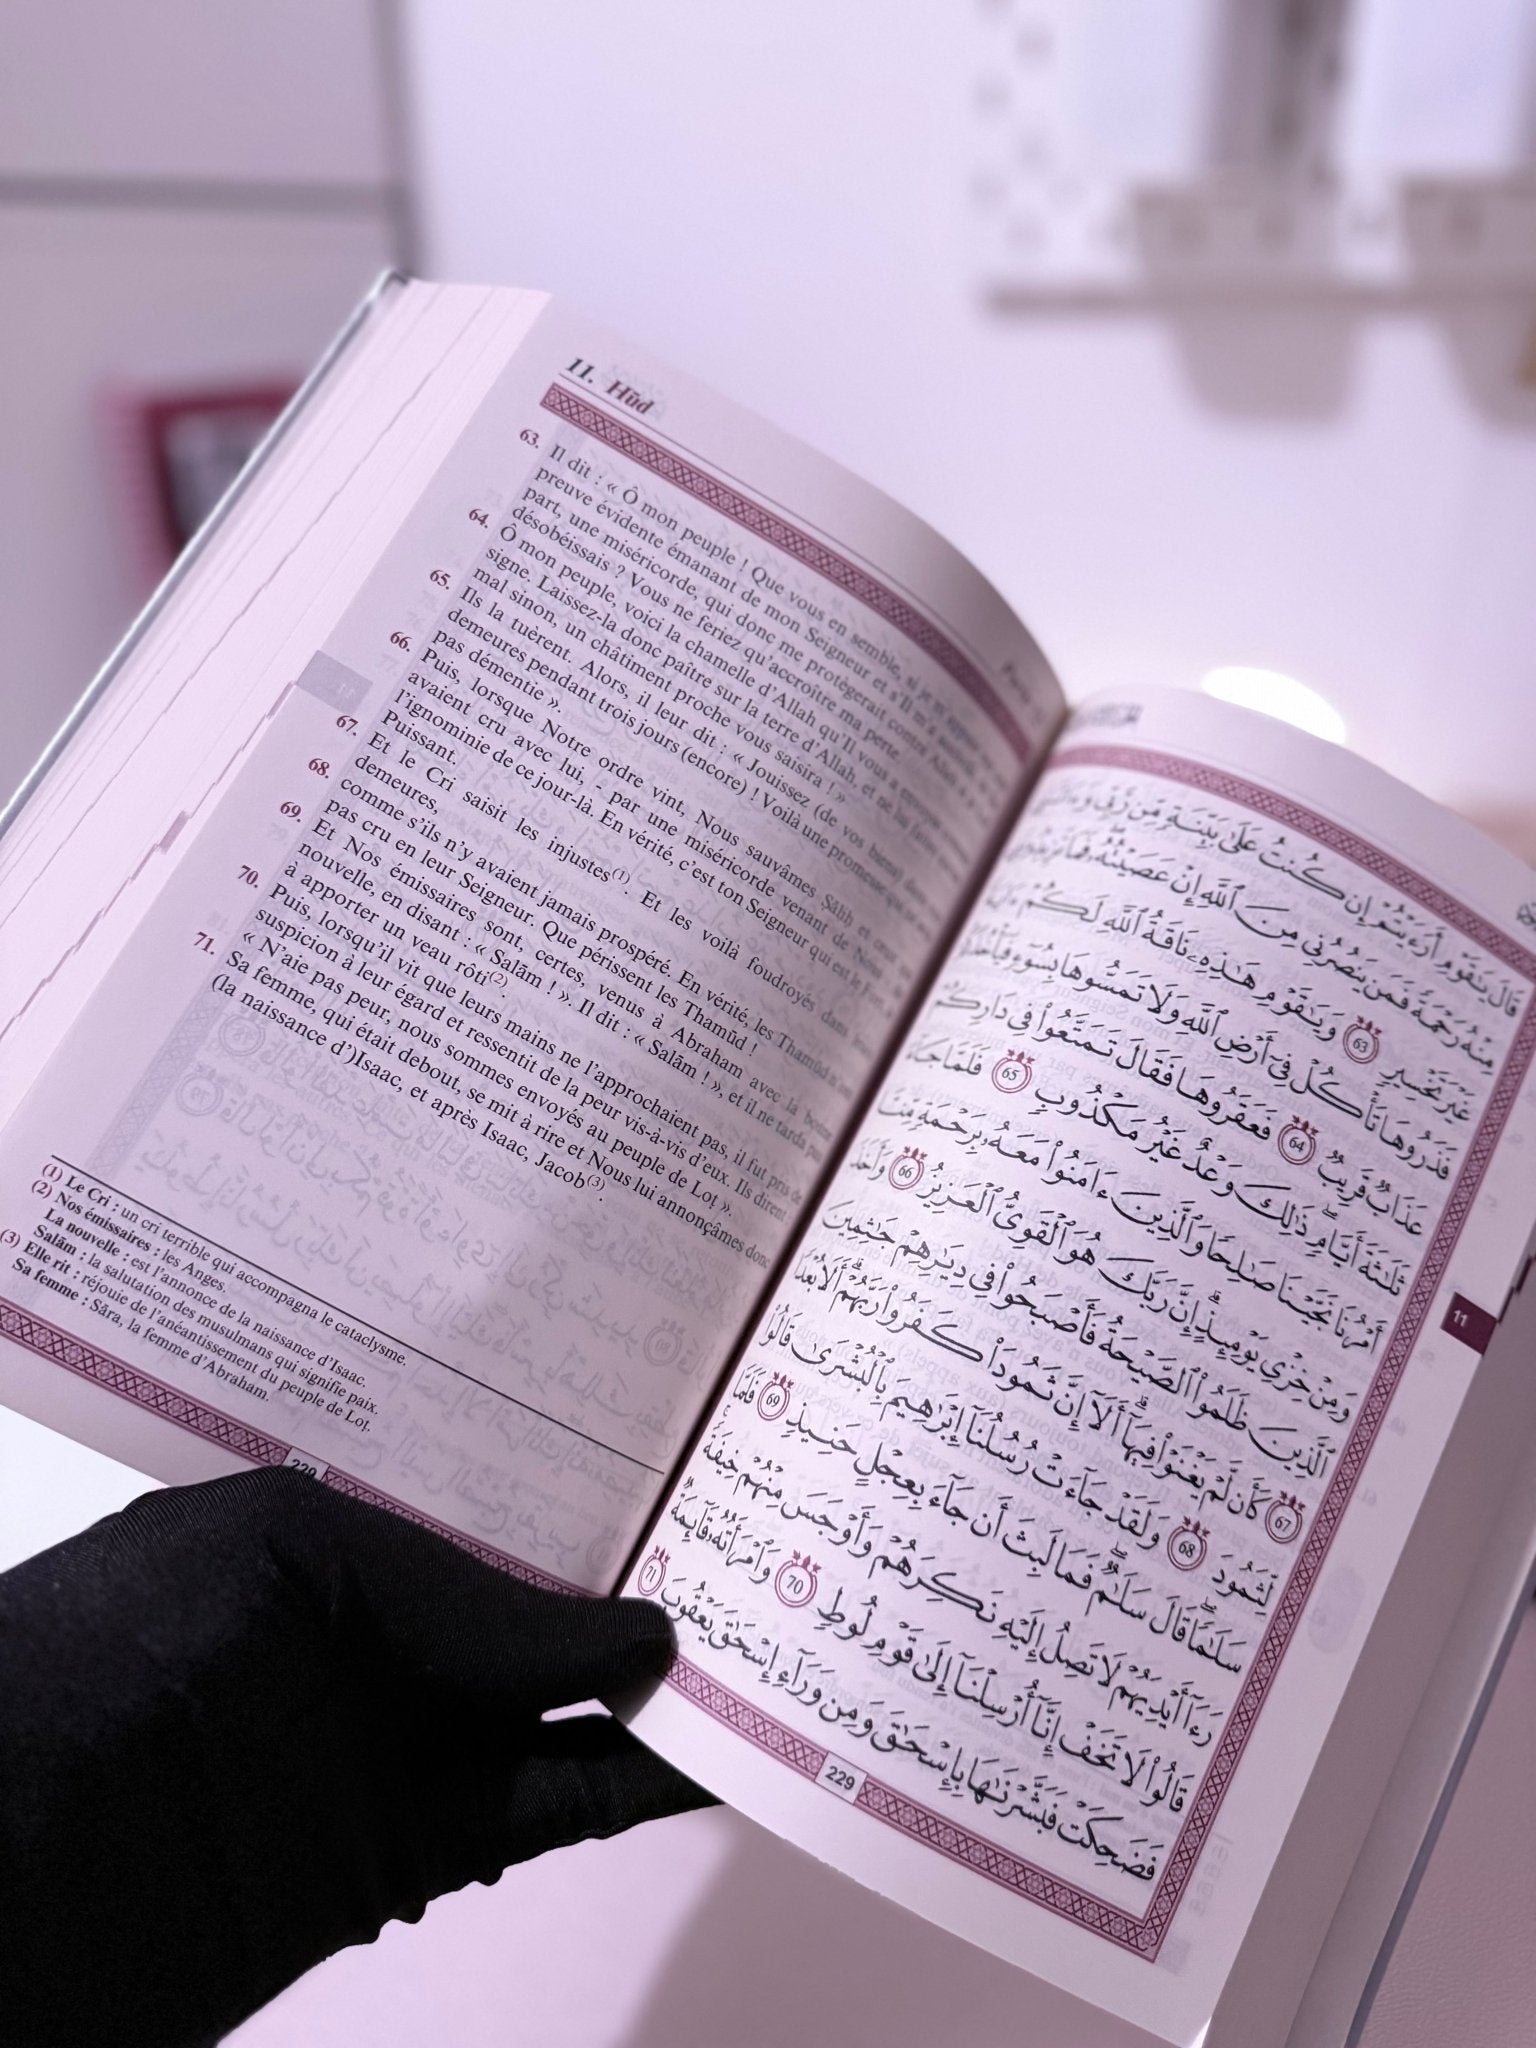 11. Hūd
63. Il dit : « Ô mon peuple ! Que vous en semble, si je
preuve évidente émanant de mon Seigneur et s'Il m'a
part, une miséricorde, qui donc me protègerait contre Allah si je
désobéissais ? Vous ne feriez qu'accroître ma perte.
64. Ô mon peuple, voici la chamelle d'Allah qu'Il vous a
signe. Laissez-la donc paître sur la terre d'Allah, et ne lui
mal sinon, un châtiment proche vous saisira ! »
65. Ils la tuèrent. Alors, il leur dit : « Jouissez (de vos biens) dans
demeures pendant trois jours (encore) ! Voilà une promesse qui
pas démentie ».
66. Puis, lorsque Notre ordre vint, Nous sauvâmes Ṣāliḥ et ceux
avaient cru avec lui, - par une miséricorde venant de Nous
l'ignominie de ce jour-là. En vérité, c'est ton Seigneur qui est le Fort, le
Puissant.
67. Et le Cri saisit les injustes(1). Et les voilà foudroyés dans
demeures,
68. comme s'ils n'y avaient jamais prospéré. En vérité, les Thamūd n'ont
pas cru en leur Seigneur. Que périssent les Thamūd !
69. Et Nos émissaires sont, certes, venus à Abraham avec la bonne
nouvelle, en disant : « Salām ! ». Il dit : « Salām ! », et il ne tarda pas
à apporter un veau rôti(2).
70. Puis, lorsqu'il vit que leurs mains ne l'approchaient pas, il fut pris de
suspicion à leur égard et ressentit de la peur vis-à-vis d'eux. Ils dirent :
« N'aie pas peur, nous sommes envoyés au peuple de Loṭ ».
71. Sa femme, qui était debout, se mit à rire et Nous lui annonçâmes donc
(la naissance d')Isaac, et après Isaac, Jacob(3).
(1) Le Cri : un cri terrible qui accompagna le cataclysme.
(2) Nos émissaires : les Anges.
La nouvelle : est l'annonce de la naissance d'Isaac.
Salām : la salutation des musulmāns qui signifie paix.
(3) Elle rit : réjouie de l'anéantissement du peuple de Loṭ.
Sa femme : Sāra, la femme d'Abraham.
229
قَالَ يَـٰقَوْمِ أَرَءَيْتُمْ إِن كُنتُ عَلَىٰ بَيِّنَةٍ مِّن رَّبِّى وَءَاتَىٰنِى
مِنْهُ رَحْمَةً فَمَن يَنصُرُنِى مِنَ ٱللَّهِ إِنْ عَصَيْتُهُۥ فَمَا تَزِيدُونَنِى
غَيْرَ تَخْسِيرٍ 63 وَيَـٰقَوْمِ هَـٰذِهِۦ نَاقَةُ ٱللَّهِ لَكُمْ ءَايَةً
فَذَرُوهَا تَأْكُلْ فِىٓ أَرْضِ ٱللَّهِ وَلَا تَمَسُّوهَا بِسُوٓءٍ فَيَأْخُذَكُمْ
عَذَابٌ قَرِيبٌ 64 فَعَقَرُوهَا فَقَالَ تَمَتَّعُوا۟ فِى دَارِكُمْ
ثَلَـٰثَةَ أَيَّامٍ ۖ ذَٰلِكَ وَعْدٌ غَيْرُ مَكْذُوبٍ 65 فَلَمَّا جَآءَ
أَمْرُنَا نَجَّيْنَا صَـٰلِحًا وَٱلَّذِينَ ءَامَنُوا۟ مَعَهُۥ بِرَحْمَةٍ مِّنَّا
وَمِنْ خِزْىِ يَوْمِئِذٍ ۗ إِنَّ رَبَّكَ هُوَ ٱلْقَوِىُّ ٱلْعَزِيزُ 66 وَأَخَذَ
ٱلَّذِينَ ظَلَمُوا۟ ٱلصَّيْحَةُ فَأَصْبَحُوا۟ فِى دِيَـٰرِهِمْ جَـٰثِمِينَ
67 كَأَن لَّمْ يَغْنَوْا۟ فِيهَآ ۗ أَلَآ إِنَّ ثَمُودَا۟ كَفَرُوا۟ رَبَّهُمْ ۗ أَلَا بُعْدًا
لِّثَمُودَ 68 وَلَقَدْ جَآءَتْ رُسُلُنَآ إِبْرَٰهِيمَ بِٱلْبُشْرَىٰ قَالُوا۟
سَلَـٰمًا ۖ قَالَ سَلَـٰمٌ ۖ فَمَا لَبِثَ أَن جَآءَ بِعِجْلٍ حَنِيذٍ 69 فَلَمَّا
رَءَآ أَيْدِيَهُمْ لَا تَصِلُ إِلَيْهِ نَكِرَهُمْ وَأَوْجَسَ مِنْهُمْ خِيفَةً ۚ
قَالُوا۟ لَا تَخَفْ إِنَّآ أُرْسِلْنَآ إِلَىٰ قَوْمِ لُوطٍ 70 وَٱمْرَأَتُهُۥ قَآئِمَةٌ
فَضَحِكَتْ فَبَشَّرْنَـٰهَا بِإِسْحَـٰقَ وَمِن وَرَآءِ إِسْحَـٰقَ يَعْقُوبَ 71
11
229